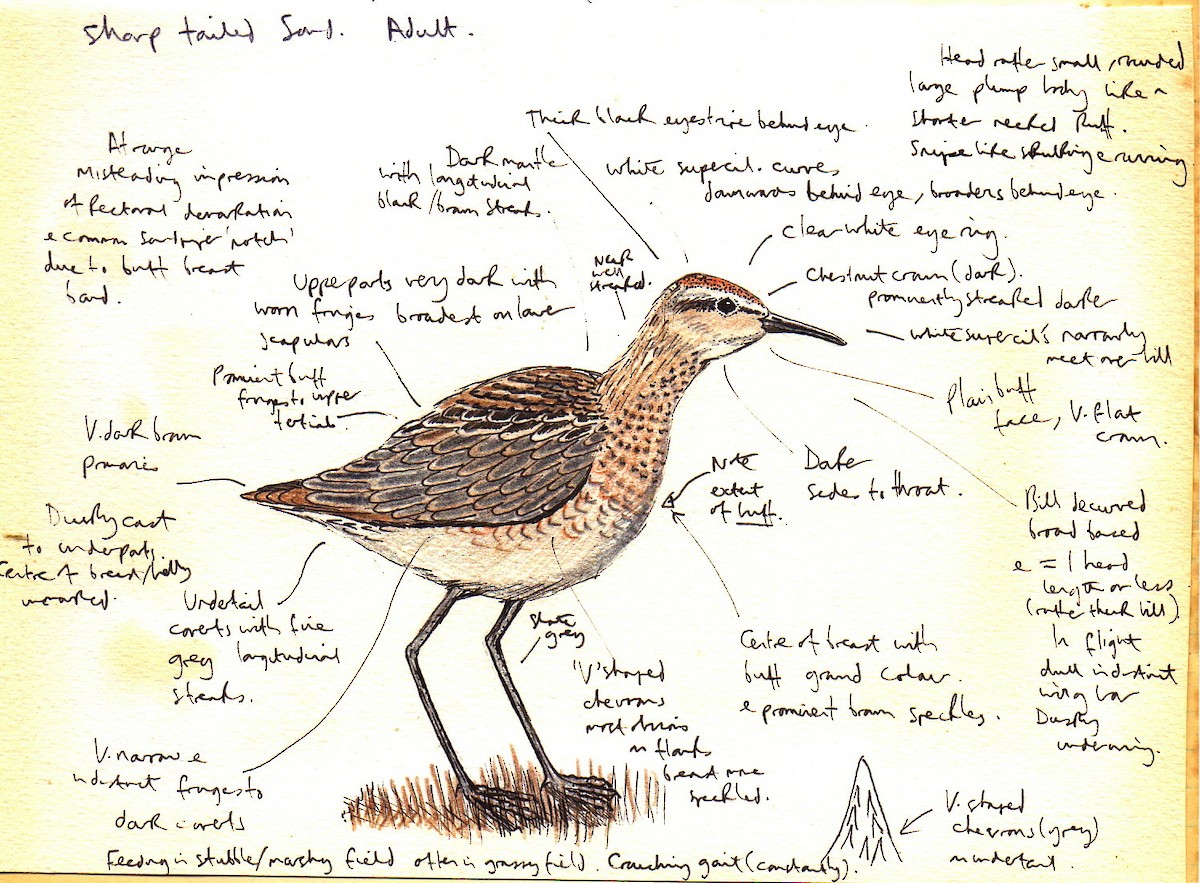 Sharp tailed Sand. Adult.
Head rather small, rounded
large plump body like a
shorter necked Ruff.
Snipe like skulking & running
Thick black eyestripe behind eye.
At range
Misleading impression
of Pectoral demarkation
& common Sandpiper 'notch'
due to buff breast
band.
Dark mantle
with longitudinal
black/brown streaks.
white supercil. curves
downwards behind eye, broadens behind eye.
clear white eye ring.
Neck
well
streaked.
Chestnut crown (dark).
prominently streaked darker
Upperparts very dark with
worn fringes broadest on lower
scapulars
white supercil's narrowly
meet over bill
Prominent buff
fringes to upper
tertials.
Plain buff
face, V. flat
crown.
V. dark brown
primaries
Note
extent
of buff.
Darker
sides to throat.
Bill decurved
broad based
& = 1 head
length or less
(rather thick bill)
In flight
dull indistinct
wing bar
Dusky
underwing.
Dusky cast
to underparts.
Centre of breast/belly
unmarked.
Undertail
coverts with fine
grey longitudinal
streaks.
Slate
grey
"V" shaped
chevrons
most obvious
on flanks
breast more
speckled.
Centre of breast with
buff ground colour.
& prominent brown speckles.
V. narrow &
indistinct fringes to
dark coverts
V. shaped
chevrons (grey)
on undertail.
Feeding in stubble/marshy field often in grassy field. Crouching gait (constantly).